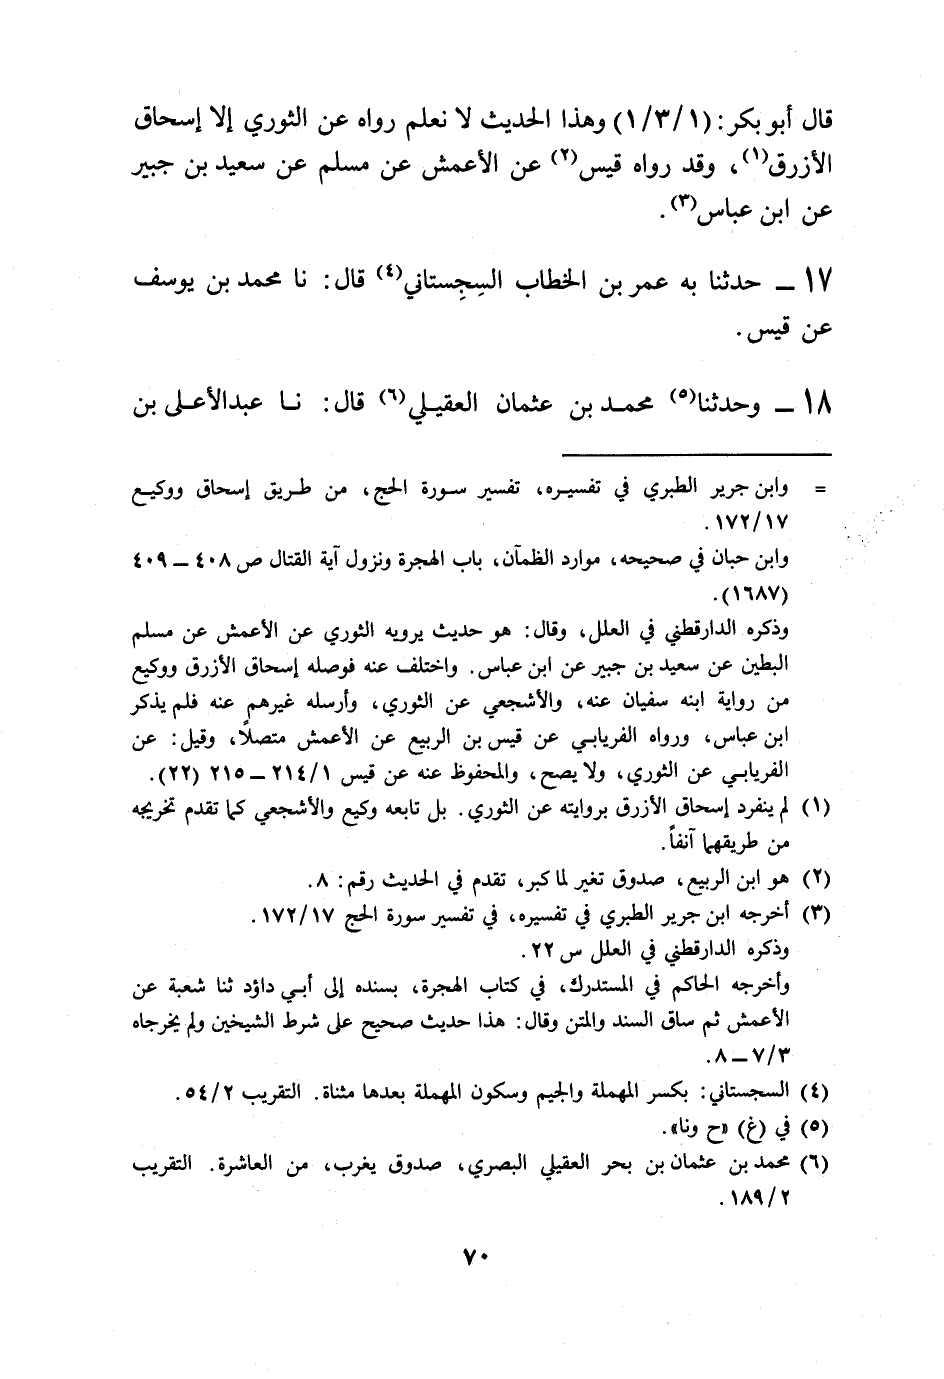 قال أبو بكر: (١/٣/١) وهذا الحديث لا نعلم رواه عن الثوري إلا إسحاق
الأزرق(١)، وقد رواه قيس(٢) عن الأعمش عن مسلم عن سعيد بن جبير
عن ابن عباس(٣).
١٧ ــ حدثنا به عمر بن الخطاب السِجِستاني(٤) قال: نا محمد بن يوسف
عن قيس.
١٨ ــ وحدثنا(٥) محمد بن عثمان العقيلي(٦) قال: نا عبدالأعلى بن
= وابن جرير الطبري في تفسيره، تفسير سورة الحج، من طريق إسحاق ووكيع
١٧٢/١٧.
وابن حبان في صحيحه، موارد الظمآن، باب الهجرة ونزول آية القتال ص ٤٠٨ ــ ٤٠٩
(١٦٨٧).
وذكره الدارقطني في العلل، وقال: هو حديث يرويه الثوري عن الأعمش عن مسلم
البطين عن سعيد بن جبير عن ابن عباس. واختلف عنه فوصله إسحاق الأزرق ووكيع
من رواية ابنه سفيان عنه، والأشجعي عن الثوري، وأرسله غيرهم عنه فلم يذكر
ابن عباس، ورواه الفريابي عن قيس بن الربيع عن الأعمش متصلاً، وقيل: عن
الفريابي عن الثوري، ولا يصح، والمحفوظ عنه عن قيس ٢١٤/١ ــ ٢١٥ (٢٢).
(١) لم ينفرد إسحاق الأزرق بروايته عن الثوري. بل تابعه وكيع والأشجعي كما تقدم تخريجه
من طريقهما آنفاً.
(٢) هو ابن الربيع، صدوق تغير لما كبر، تقدم في الحديث رقم: ٨.
(٣) أخرجه ابن جرير الطبري في تفسيره، في تفسير سورة الحج ١٧٢/١٧.
وذكره الدارقطني في العلل س ٢٢.
وأخرجه الحاكم في المستدرك، في كتاب الهجرة، بسنده إلى أبي داؤد ثنا شعبة عن
الأعمش ثم ساق السند والمتن وقال: هذا حديث صحيح على شرط الشيخين ولم يخرجاه
٧/٣ ــ ٨.
(٤) السجستاني: بكسر المهملة والجيم وسكون المهملة بعدها مثناة. التقريب ٥٤/٢.
(٥) في (غ) «ح ونا».
(٦) محمد بن عثمان بن بحر العقيلي البصري، صدوق يغرب، من العاشرة. التقريب
١٨٩/٢.
٧٠